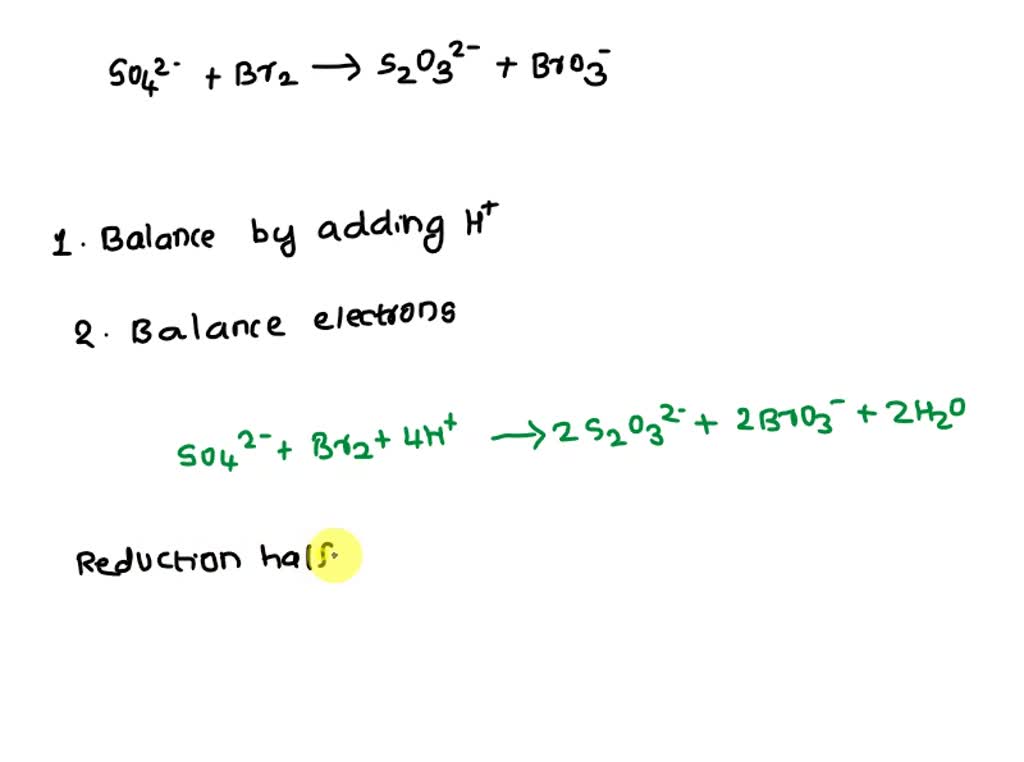 SO₄²⁻ + Br₂ → S₂O₃²⁻ + BrO₃⁻
1. Balance by adding H⁺
2. Balance electrons
SO₄²⁻ + Br₂ + 4H⁺ → 2S₂O₃²⁻ + 2BrO₃⁻ + 2H₂O
Reduction half